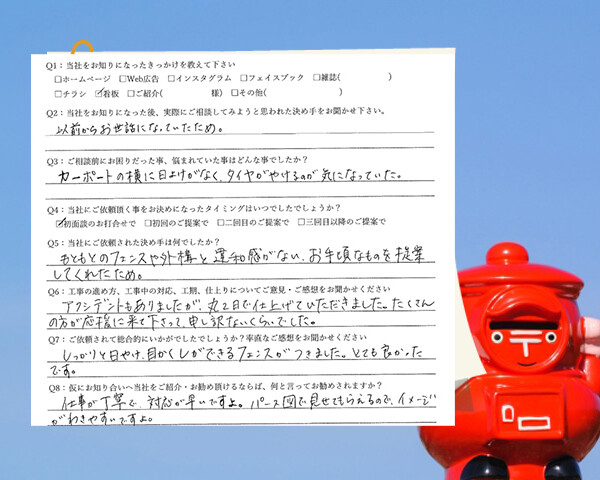 Q1：当社をお知りになったきっかけを教えて下さい
□ホームページ □Web広告 □インスタグラム □フェイスブック □雑誌( )
□チラシ ☑看板 □ご紹介( 様) □その他( )
Q2：当社をお知りになった後、実際にご相談してみようと思われた決め手をお聞かせ下さい。
以前からお世話になっていたため。
Q3：ご相談前にお困りだった事、悩まれていた事はどんな事でしたか？
カーポートの横に日よけがなく、タイヤがやけるのが気になっていた。
Q4：当社にご依頼頂く事をお決めになったタイミングはいつでしたでしょうか？
☑初面談のお打合せで □初回のご提案で □二回目のご提案で □三回目以降のご提案で
Q5：当社にご依頼された決め手は何でしたか？
もともとのフェンスや外構と違和感がない、お手頃なものを提案
してくれたため。
Q6：工事の進め方、工事中の対応、工期、仕上りについてご意見・ご感想をお聞かせください
アクシデントもありましたが、丸2日で仕上げていただきました。たくさん
の方が応援に来て下さって、申し訳ないくらいでした。
Q7：ご依頼されて総合的にいかがでしたでしょうか？率直なご感想をお聞かせください
しっかりと日やけ、目かくしができるフェンスがつきました。とても良かった
です。
Q8：仮にお知り合いへ当社をご紹介・お勧め頂けるならば、何と言ってお勧めされますか？
仕事が丁寧で、対応が早いですよ。パース図で見せてもらえるので、イメージ
がわきやすいですよ。
〒